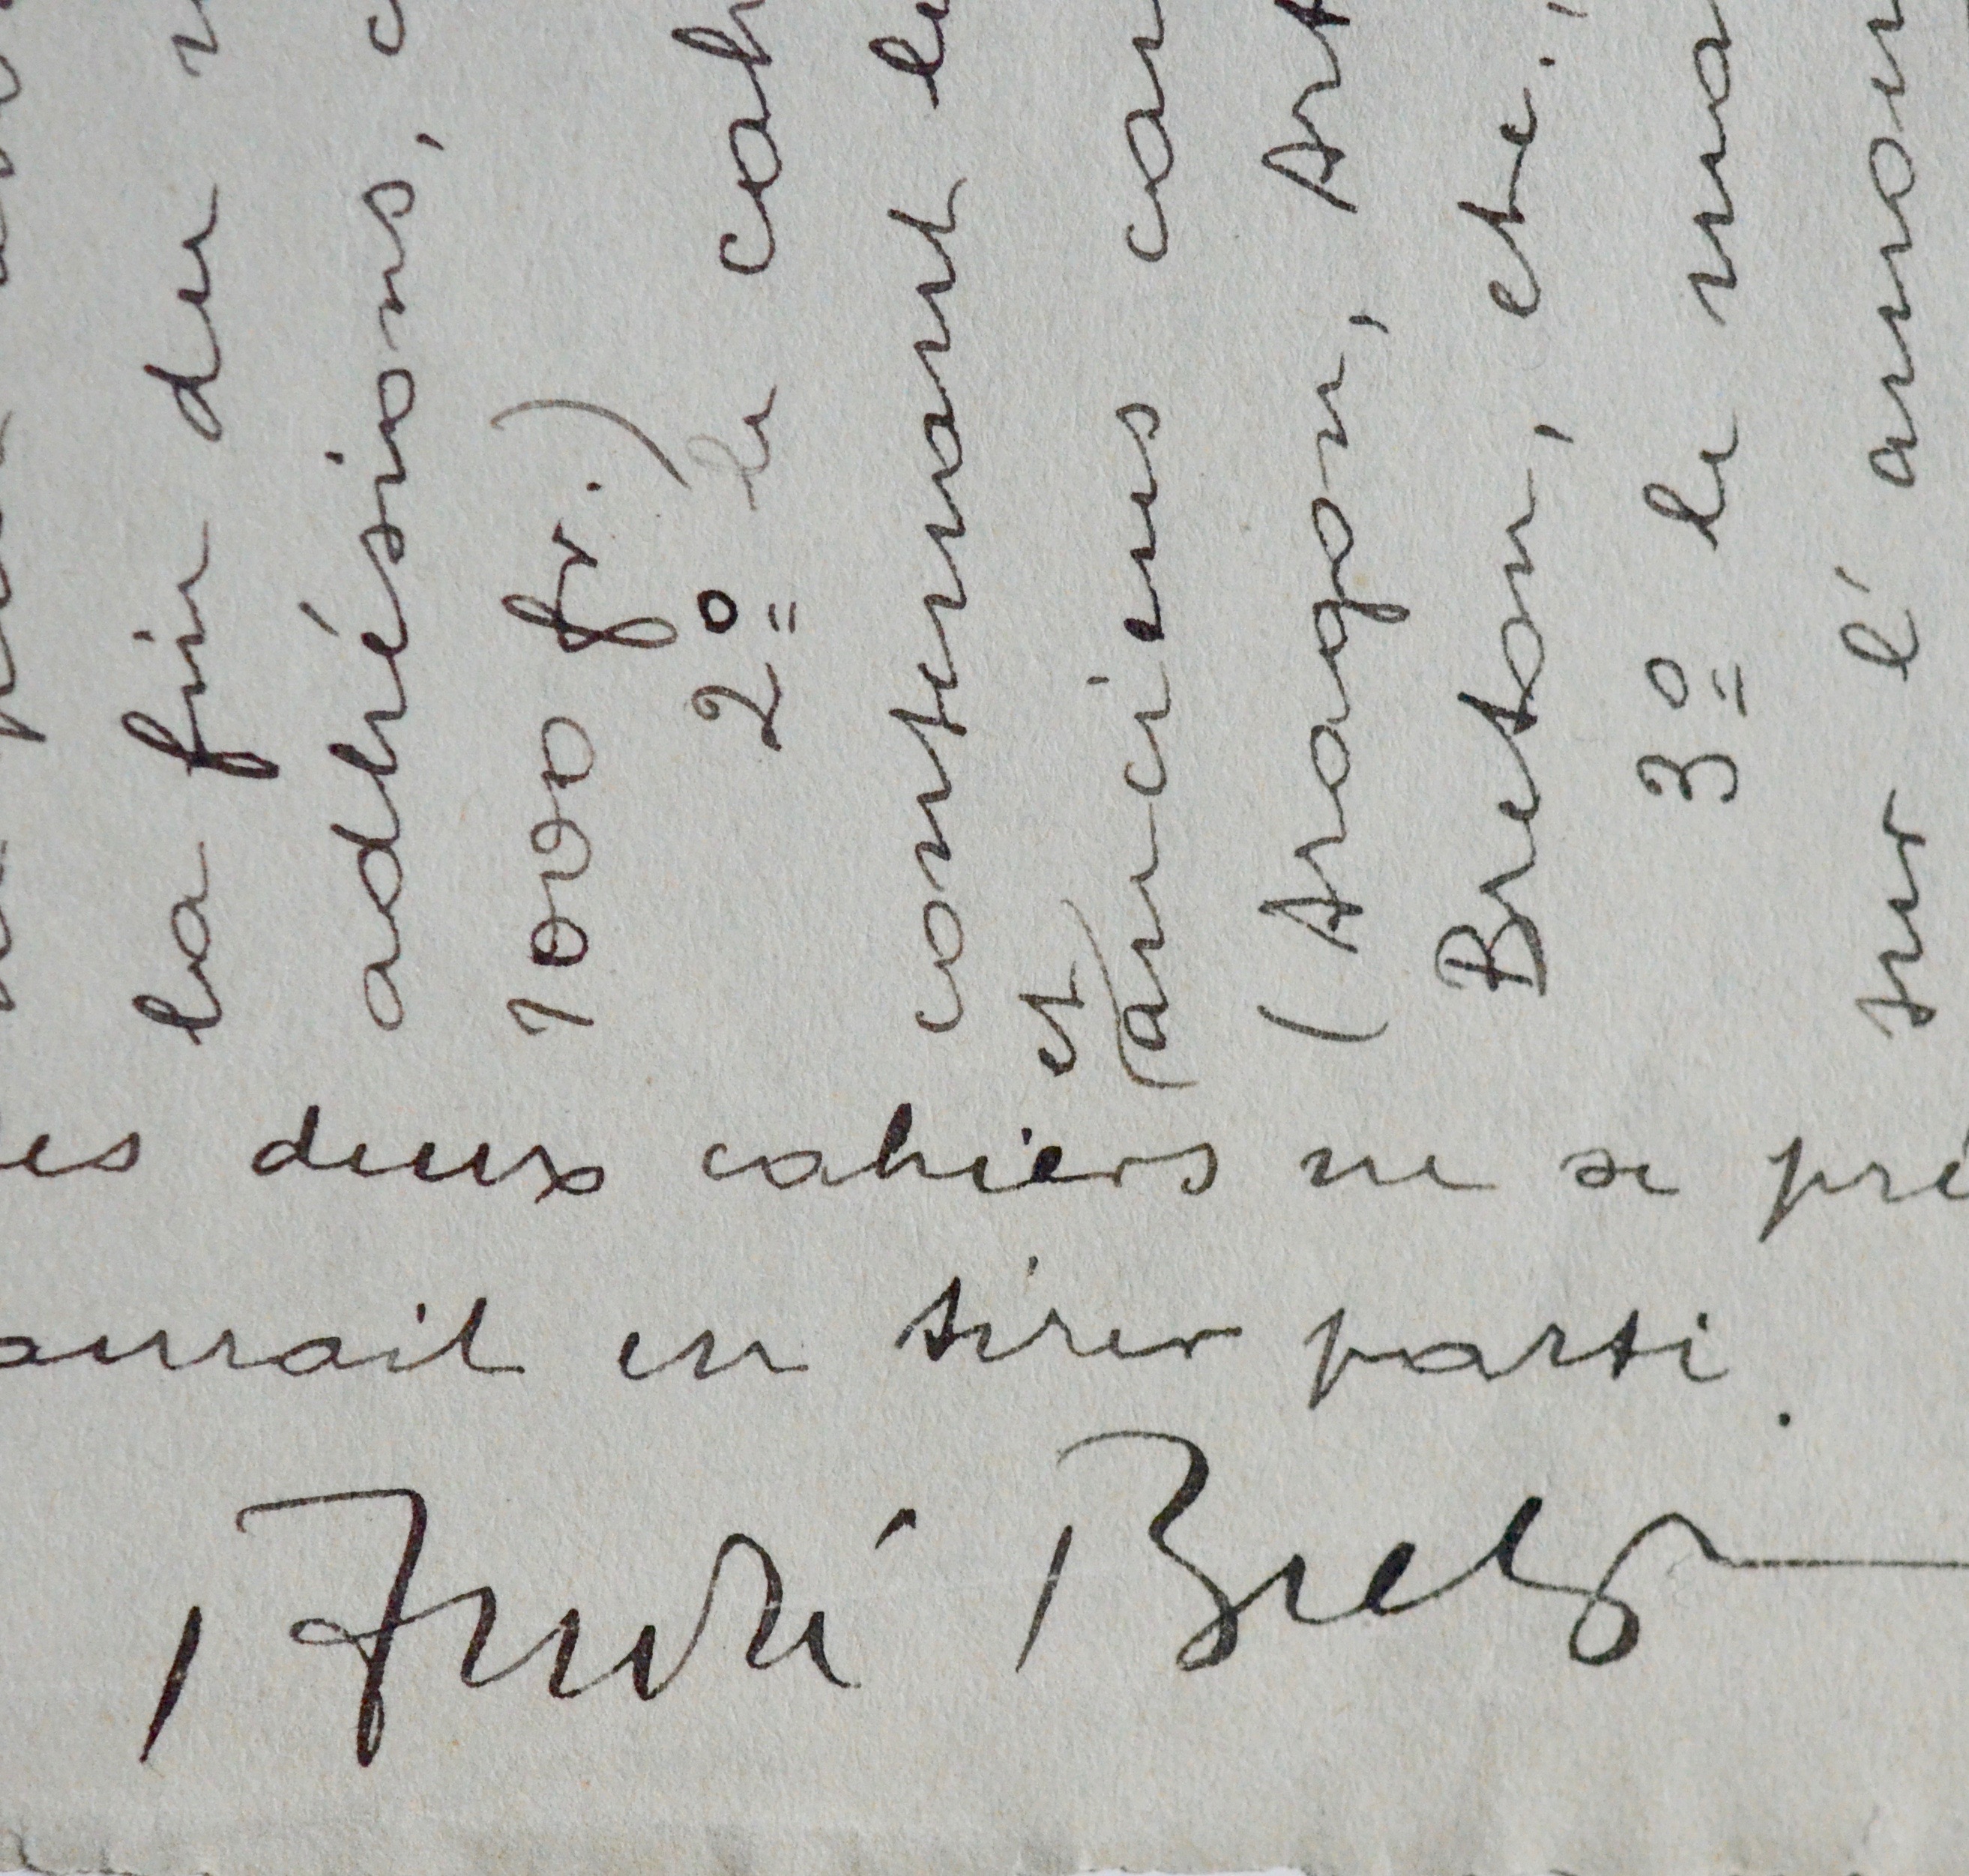 la fin du
adhésions,
1000 fr.)
2º le cah
contenant le
et
anciens
(Aragon, Art
Breton, etc.,
3º le
sur l'
es deux cahiers ne se pré
aurait en tirer parti.
André Breton